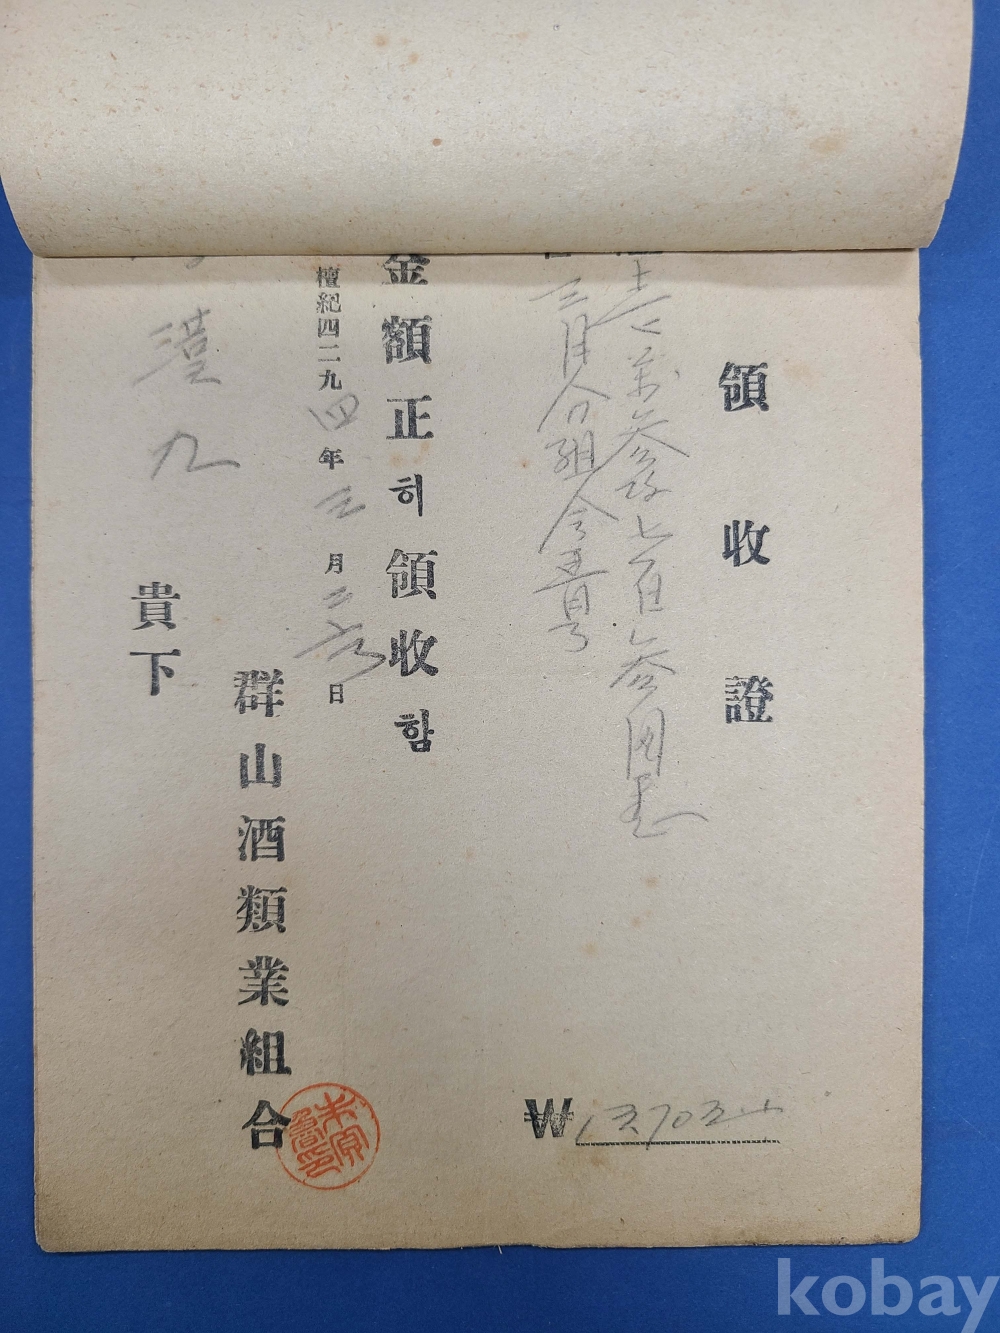 領收證
萬參阡七百參圜整
三月分組合費
₩13703
金額正히領收함
檀紀四二九四年三月二六日
群山酒類業組合
漢九
貴下
kobay